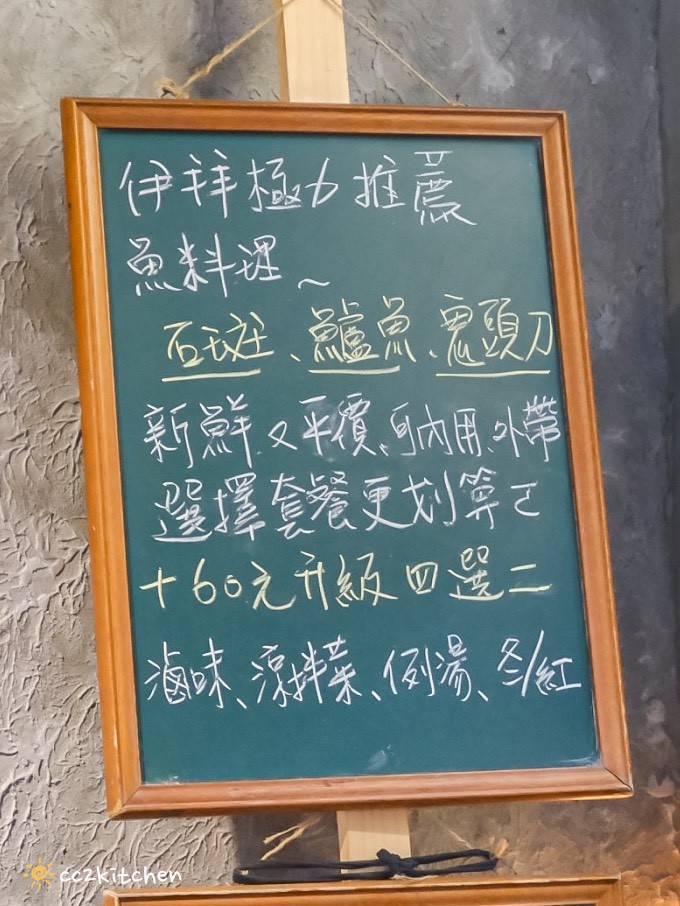 伊拜極力推薦
魚料理~
石斑、鱸魚、鬼頭刀
新鮮又平價、可內用、外帶
選擇套餐更划算
+60元升級四選二
滷味、涼拌菜、例湯、冬/紅
cc2kitchen